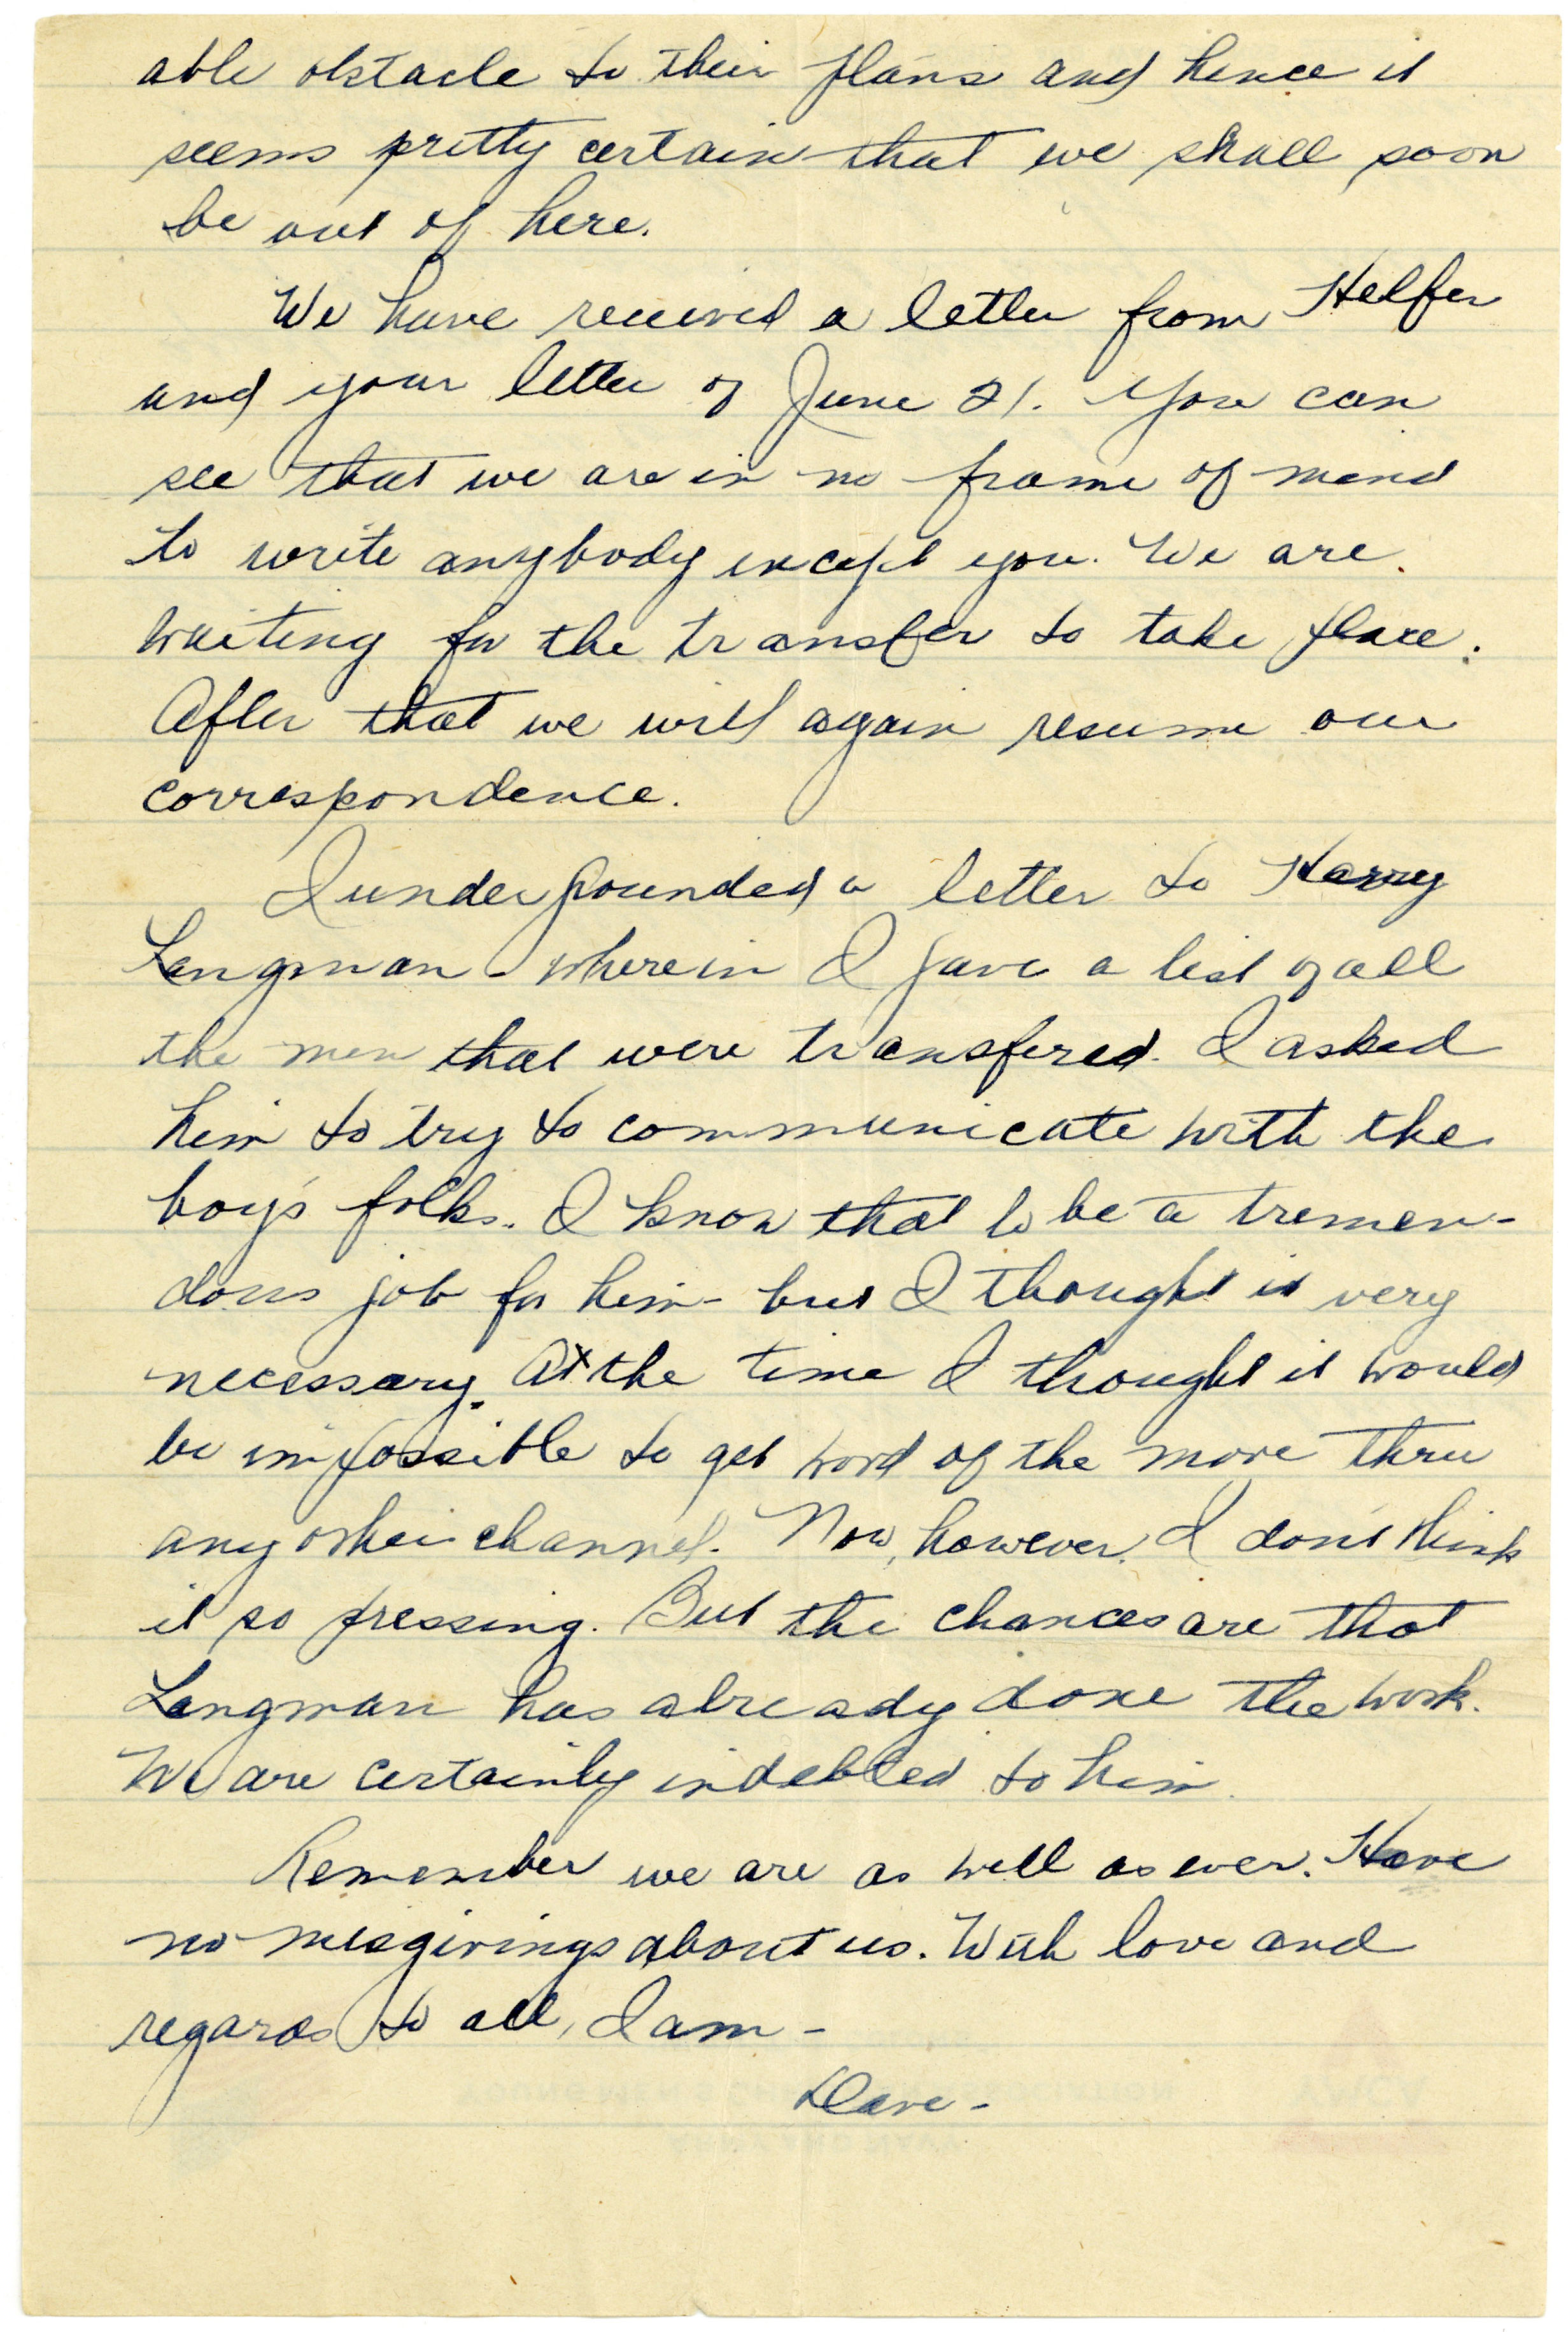 able obstacle to their plans and hence it
seems pretty certain that we shall soon
be out of here.
We have received a letter from Helfer
and your letter of June 21. You can
see that we are in no frame of mind
to write anybody except you. We are
waiting for the transfer to take place.
After that we will again resume our
correspondence.
I undergrounded a letter to Harry
Langman - wherein I gave a list of all
the men that were transfered. I asked
him to try to communicate with the
boy's folks. I know that to be a tremen-
dous job for him - but I thought it very
necessary. At the time I thought it would
be impossible to get word of the move thru
any other channel. Now, however, I don't think
it so pressing. But the chances are that
Langman has already done the work.
We are certainly indebted to him.
Remember we are as well as ever. Have
no misgivings about us. With love and
regards to all, I am -
Dave -